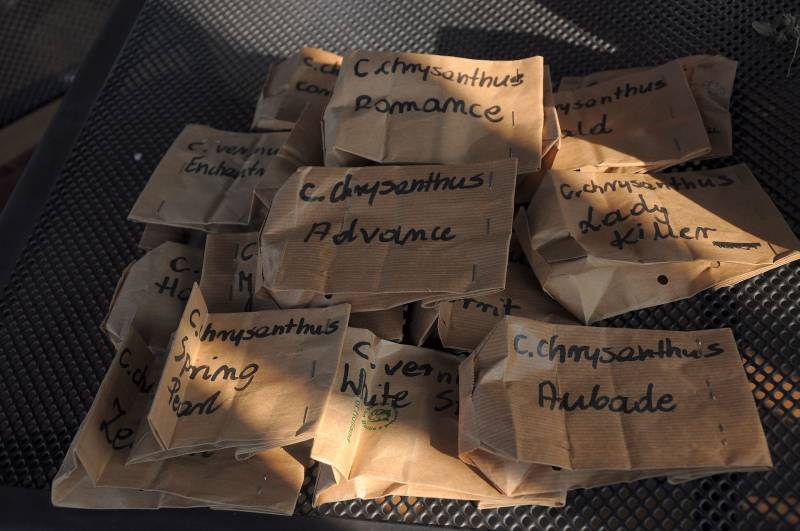 C. chrysanthus
Romance
C. vernu
Enchantr
ysanthus
ald
C. chrysanthus
Advance
C. chrysanthus
Lady
Killer
C.
Ho
C
M
C. chrysanthus
Spring
Pearl
C. vern
White S
C. chrysanthus
Aubade
C. ch
Ze